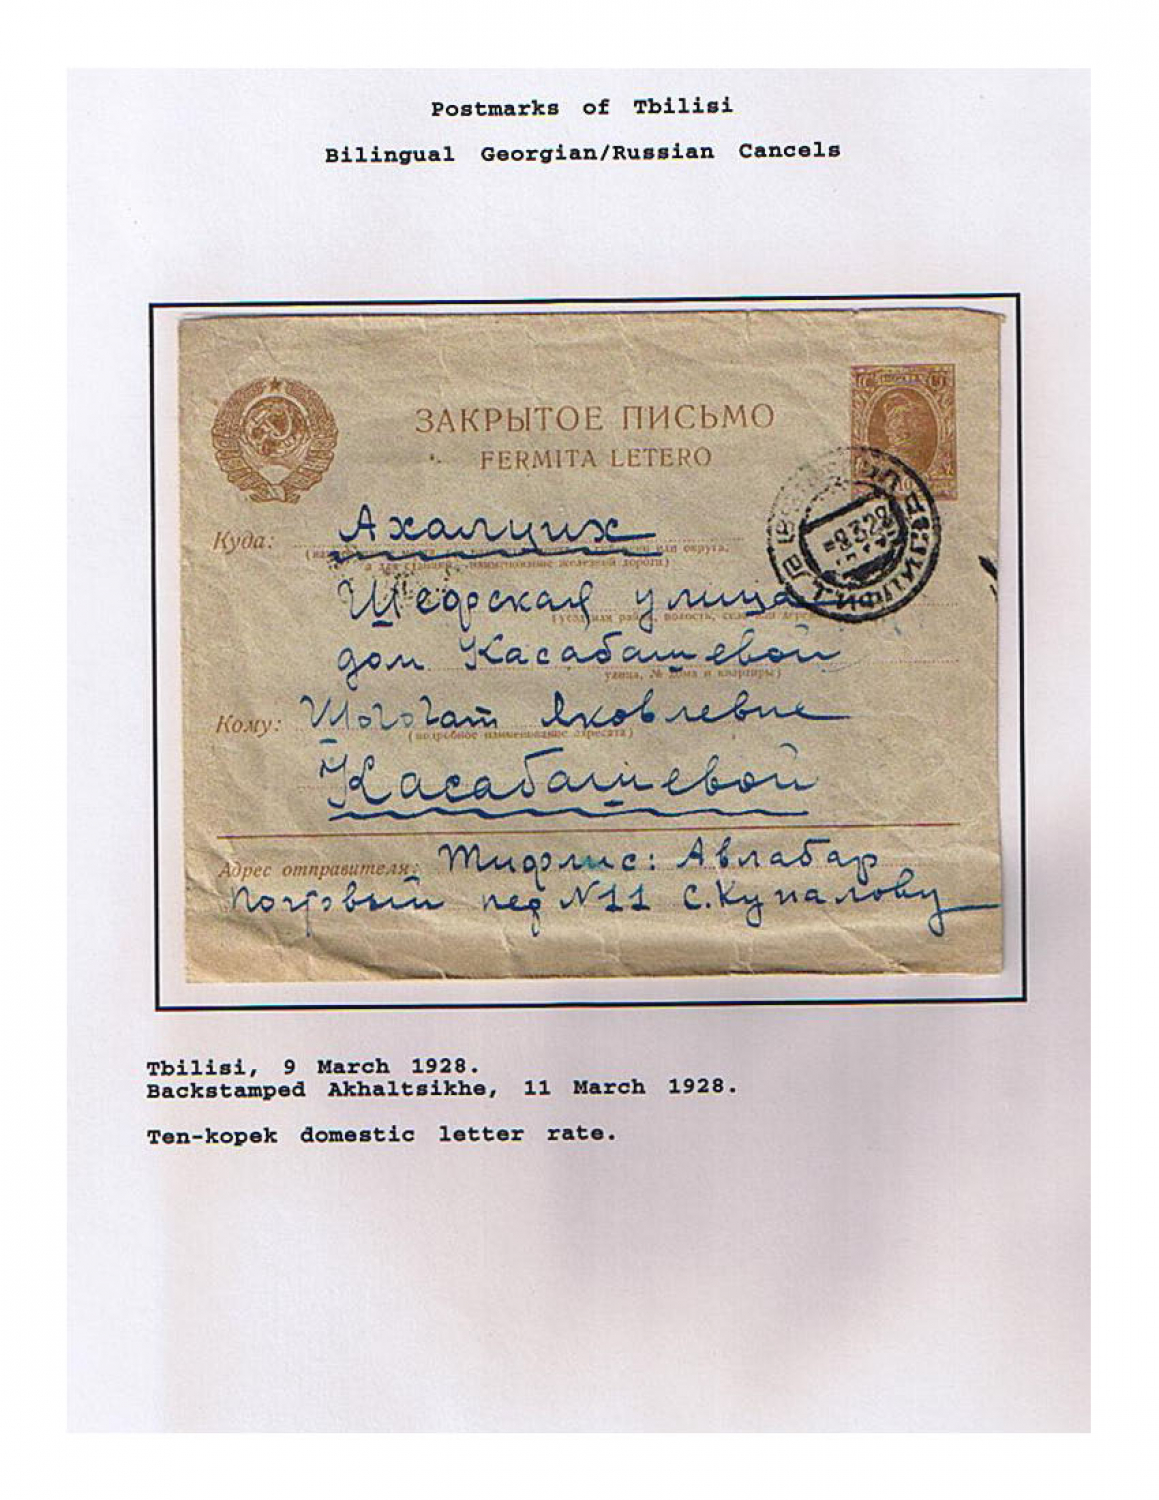 Postmarks of Tbilisi
Bilingual Georgian/Russian Cancels
ПОЧТА
ЗАКРЫТОЕ ПИСЬМО
FERMITA LETERO
ТИФЛИС
Куда: Ахалцих
а для станций, наименование железной дороги)
улица
дом Касабашевой
улица, № дома и квартиры)
Кому: Шогогат Яковлевне
(подробное наименование адресата)
Касабашевой
Адрес отправителя: Тифлис: Авлабар
пер N11 С. Купалову
Tbilisi, 9 March 1928.
Backstamped Akhaltsikhe, 11 March 1928.
Ten-kopek domestic letter rate.